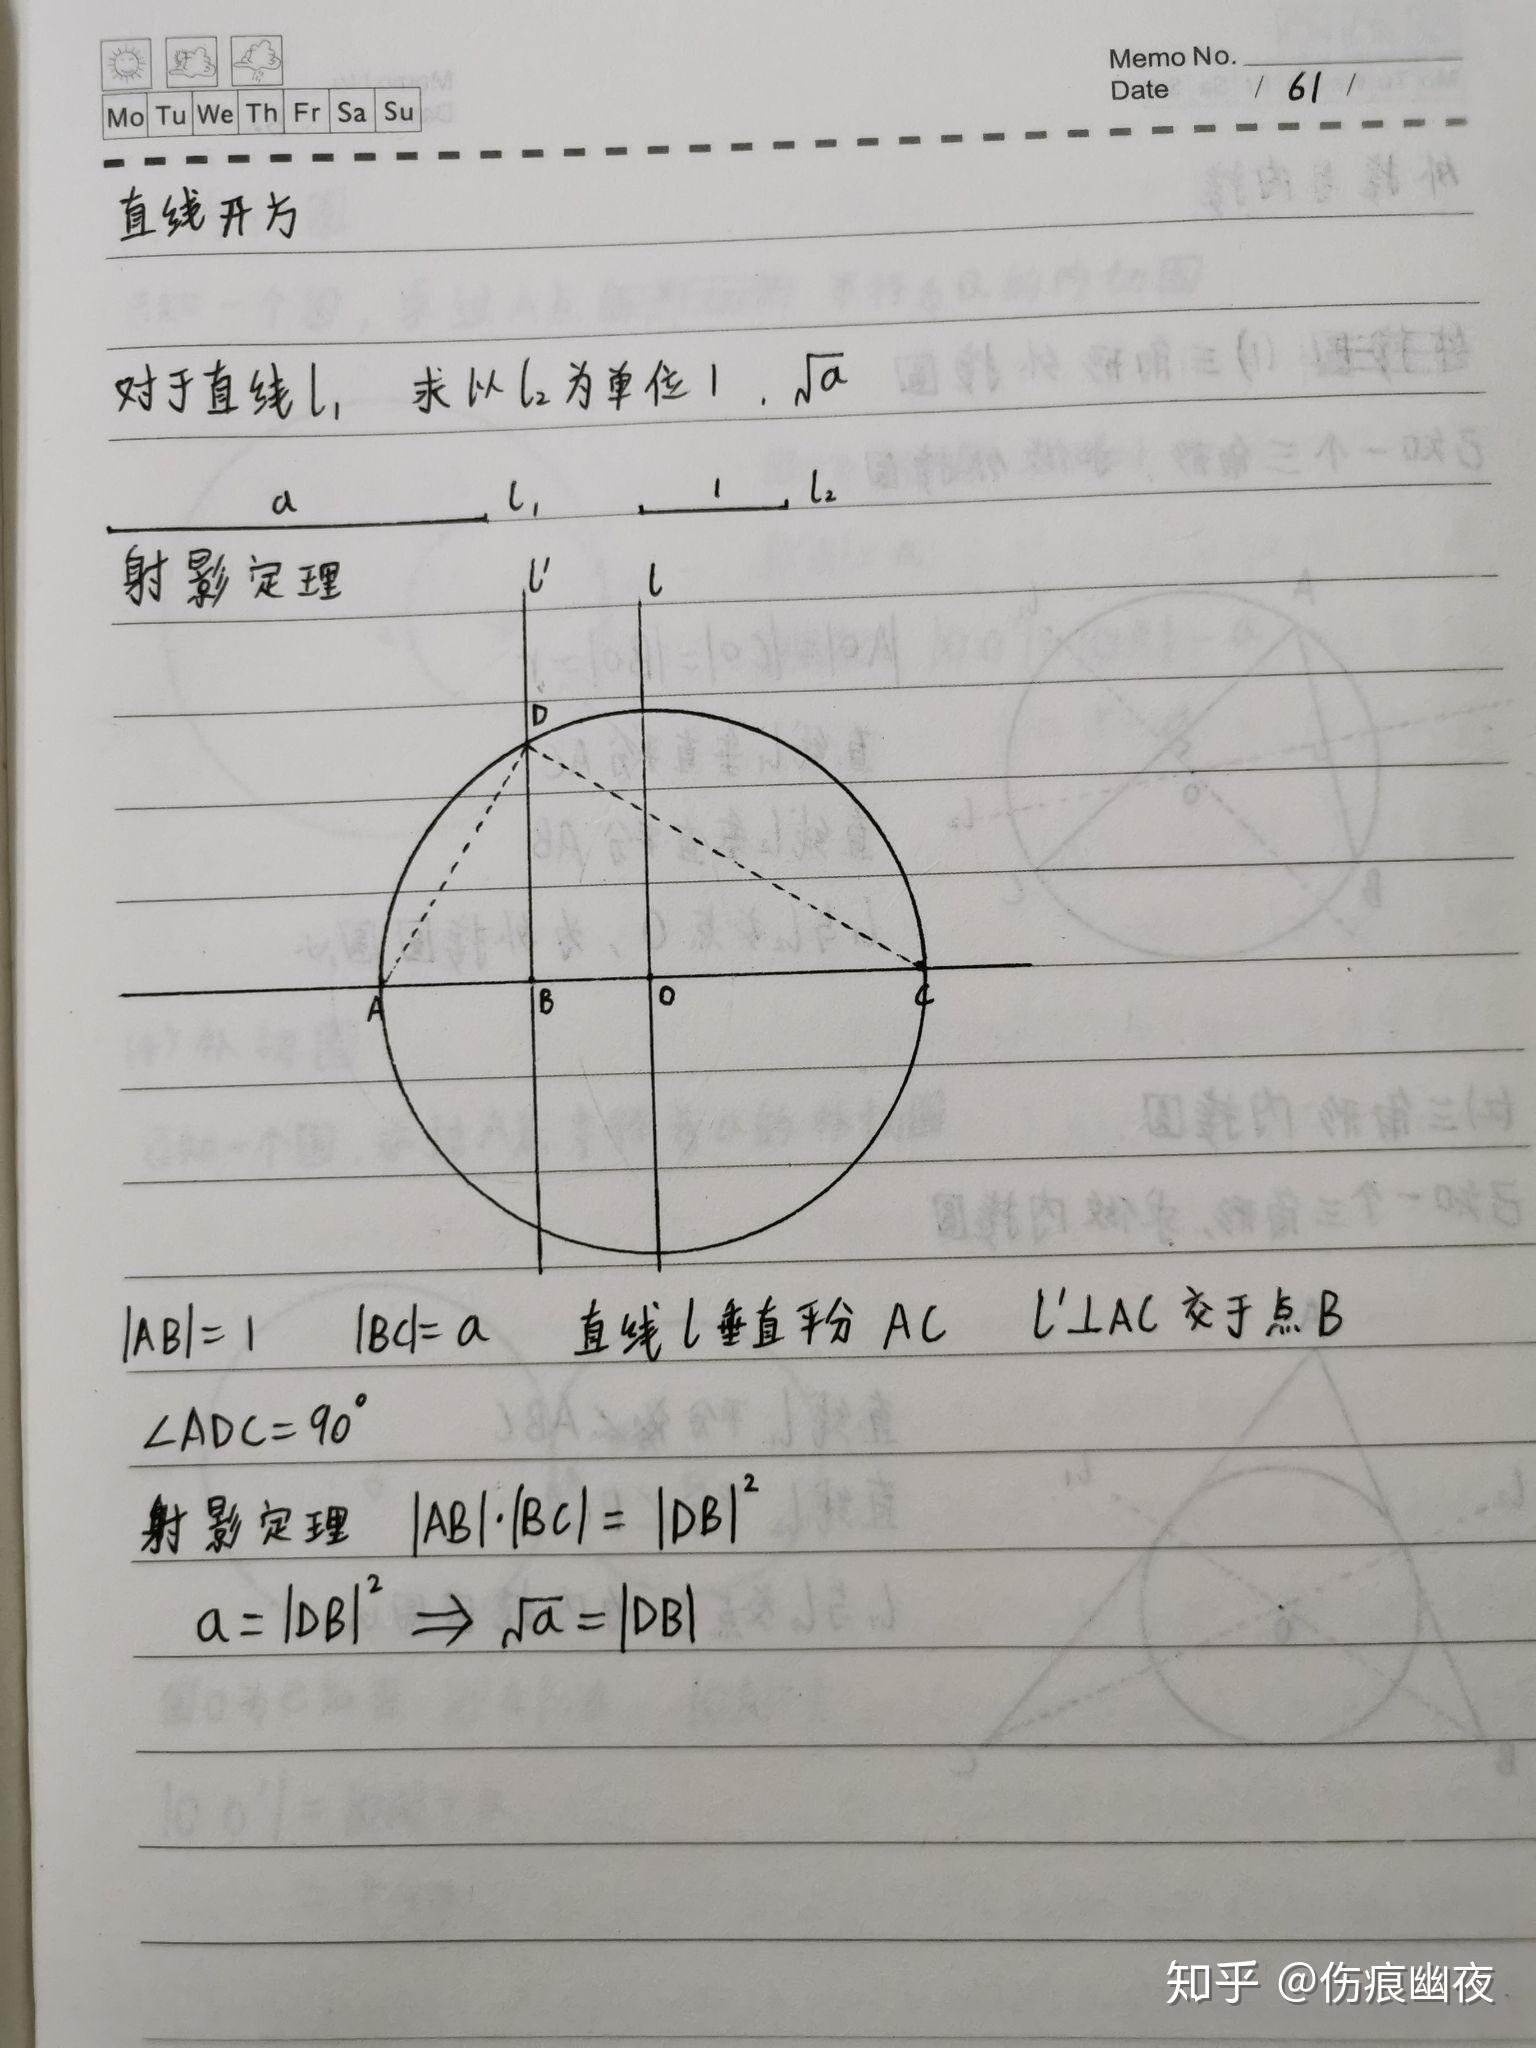 Memo No.
Mo Tu We Th Fr Sa Su
Date / 61 /
直线开方
对于直线l₁ 求以l₂为单位1，√a
a l₁ 1 l₂
射影定理
l' l
D
A B O C
|AB|=1 |BC|=a 直线l垂直平分AC l'⊥AC交于点B
∠ADC=90°
射影定理 |AB|·|BC|=|DB|²
a=|DB|² ⇒ √a=|DB|
知乎 @伤痕幽夜